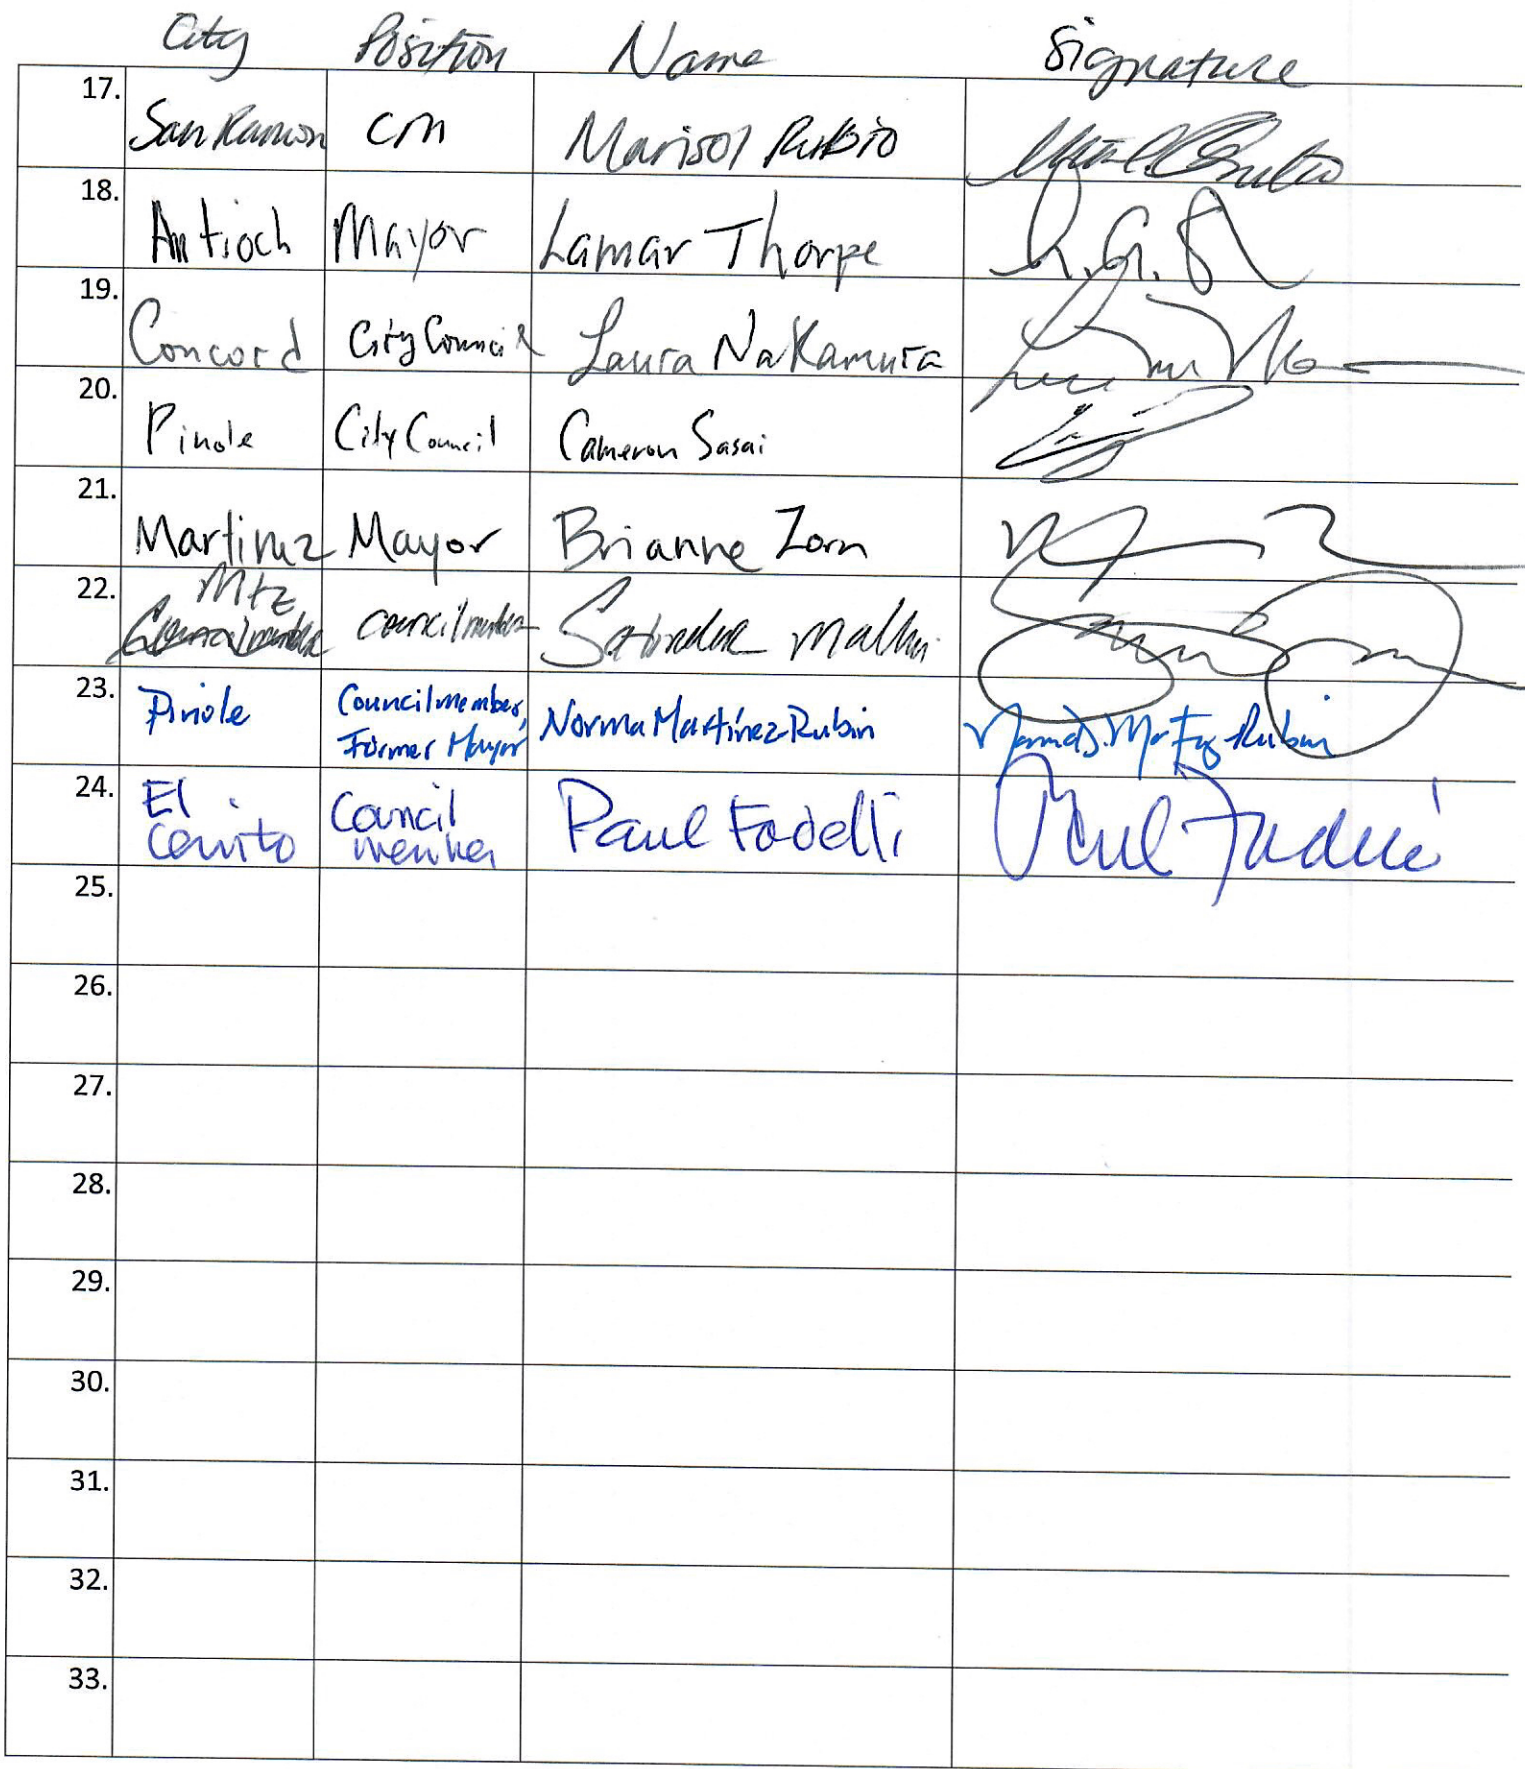 City Position Name Signature
17. San Ramon CM Marisol Rubio
18. Antioch Mayor Lamar Thorpe
19. Concord City Council Laura Nakamura
20. Pinole City Council Cameron Sasai
21. Martinez Mayor Brianne Zorn
22. Mtz
Councilmember councilmember Satinder Malhi
23. Pinole Councilmember, Norma Martínez-Rubin
Former Mayor
24. El Council Paul Fadelli Paul Fadelli
Cerrito member
25.
26.
27.
28.
29.
30.
31.
32.
33.